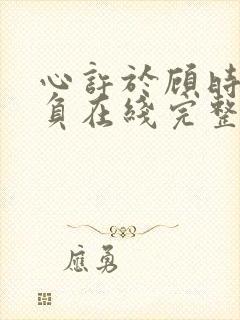 心許於顧時
負在綫完整
應勇